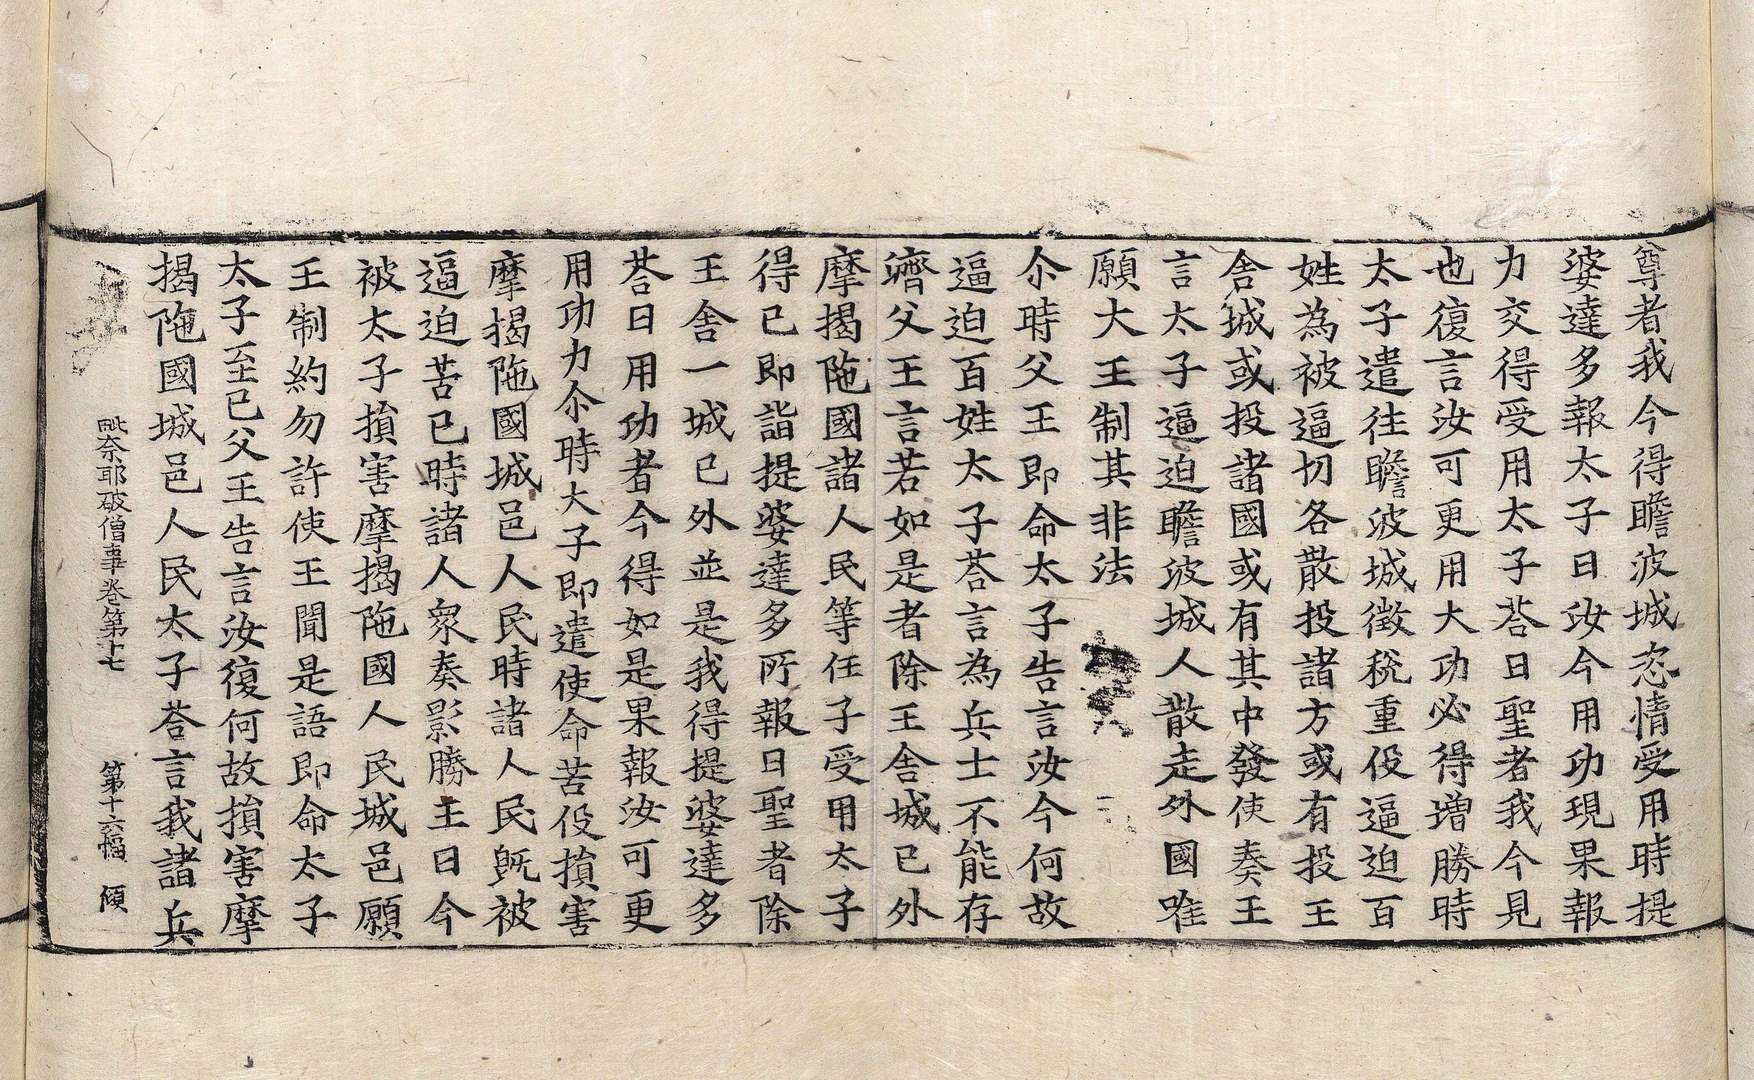 尊者我今得瞻波城恣情受用時提
婆達多報太子曰汝今用功現果報
力交得受用太子荅曰聖者我今見
也復言汝可更用大功必得增勝時
太子遣往瞻波城徵稅重役逼迫百
姓為被逼切各散投諸方或有投王
舍城或投諸國或有其中發使奏王
言太子逼迫瞻波城人散走外國唯
願大王制其非法
尒時父王即命太子告言汝今何故
逼迫百姓太子荅言為兵士不能存
濟父王言若如是者除王舍城已外
摩揭陁國諸人民等任子受用太子
得已即詣提婆達多所報曰聖者除
王舍一城已外並是我得提婆達多
荅曰用功者今得如是果報汝可更
用功力尒時大子即遣使命苦役損害
摩揭陁國城邑人民時諸人民旣被
逼迫苦已時諸人衆奏影勝王曰今
被太子損害摩揭陁國人民城邑願
王制約勿許使王聞是語即命太子
太子至已父王告言汝復何故損害摩
揭陁國城邑人民太子荅言我諸兵
毗奈耶破僧事卷第十七 第十六幅 傾